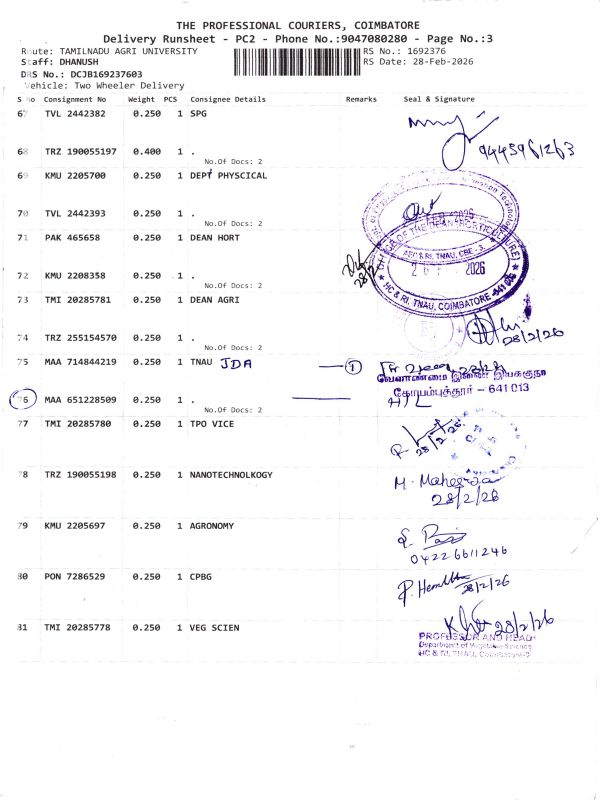 THE PROFESSIONAL COURIERS, COIMBATORE
Delivery Runsheet - PC2 - Phone No.:9047080280 - Page No.:3
Route: TAMILNADU AGRI UNIVERSITY
RS No.: 1692376
Staff: DHANUSH
RS Date: 28-Feb-2026
DRS No.: DCJB169237603
Vehicle: Two Wheeler Delivery
S no Consignment No Weight PCS Consignee Details Remarks Seal & Signature
67 TVL 2442382 0.250 1 SPG
9445961263
68 TRZ 190055197 0.400 1 .
No.Of Docs: 2
69 KMU 2205700 0.250 1 DEPT PHYSCICAL
70 TVL 2442393 0.250 1 .
No.Of Docs: 2
71 PAK 465658 0.250 1 DEAN HORT
AEC & RI, TNAU, CBE - 3
2026
HC & RI, TNAU, COIMBATORE - 641 003
72 KMU 2208358 0.250 1 .
No.Of Docs: 2
73 TMI 20285781 0.250 1 DEAN AGRI
28/2/26
74 TRZ 255154570 0.250 1 .
No.Of Docs: 2
75 MAA 714844219 0.250 1 TNAU JDA 1
வேளாண்மை இணை இயக்குநர்
கோயம்புத்தூர் - 641 013
76 MAA 651228509 0.250 1 .
No.Of Docs: 2
77 TMI 20285780 0.250 1 TPO VICE
28/2/26
78 TRZ 190055198 0.250 1 NANOTECHNOLKOGY
M. Maheswa
28/2/26
79 KMU 2205697 0.250 1 AGRONOMY
04226611246
80 PON 7286529 0.250 1 CPBG
28/2/26
81 TMI 20285778 0.250 1 VEG SCIEN
28/2/26
PROFESSOR AND HEAD
Department of Vegetable Science
HC & RI, TNAU, Coimbatore-3